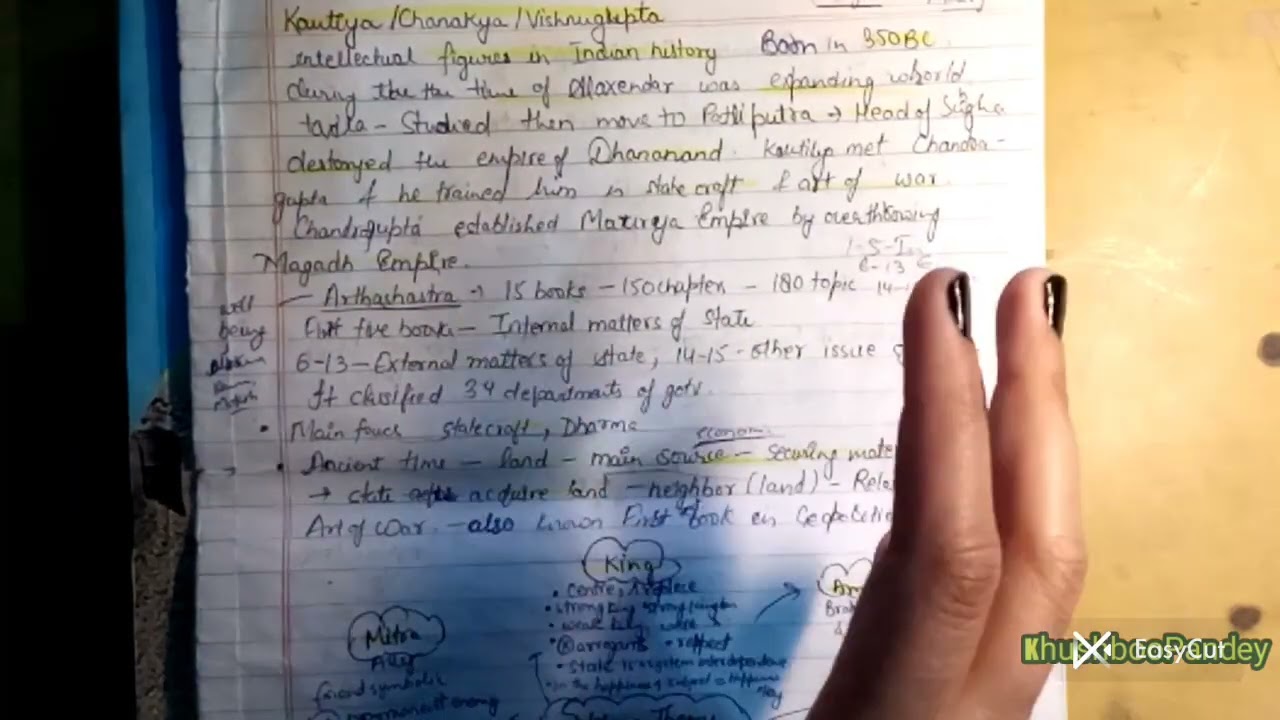 Kautiya/Chanakya/Vishnugupta
intellectual figures in Indian history Born in 350BC
during the the time of Allaxendar was expanding world
taxila - Studied then move to Patliputra → Head of
destonyed the empire of Dhananand. Kautilya met Chandra-
gupta & he trained him in state craft & art of war
Chandrgupta established Maurya Empire by overthrowing
Magadh Empire.
1-5-
6-13
well
being
Arthashastra → 15 books - 150 chapter - 180 topic 14-
First five books - Internal matters of State
6-13 - External matters of state, 14-15 - other issue
It classified 34 departments of gotv.
• Main foucs statecraft, Dharma
economi
• Ancient time - land - main source - securing mate
→ state acquire land - neighbor (land) - Rela
Art of War. - also known First book on Geopolitic
King
• Centre,
• strong king strong
• weak king
• arrogant • respect
• State is system interdependence
• in the happiness of subject
Mitra
Ally
friend symbolic
permanent enemy
KhushbooPandey
EasyCut